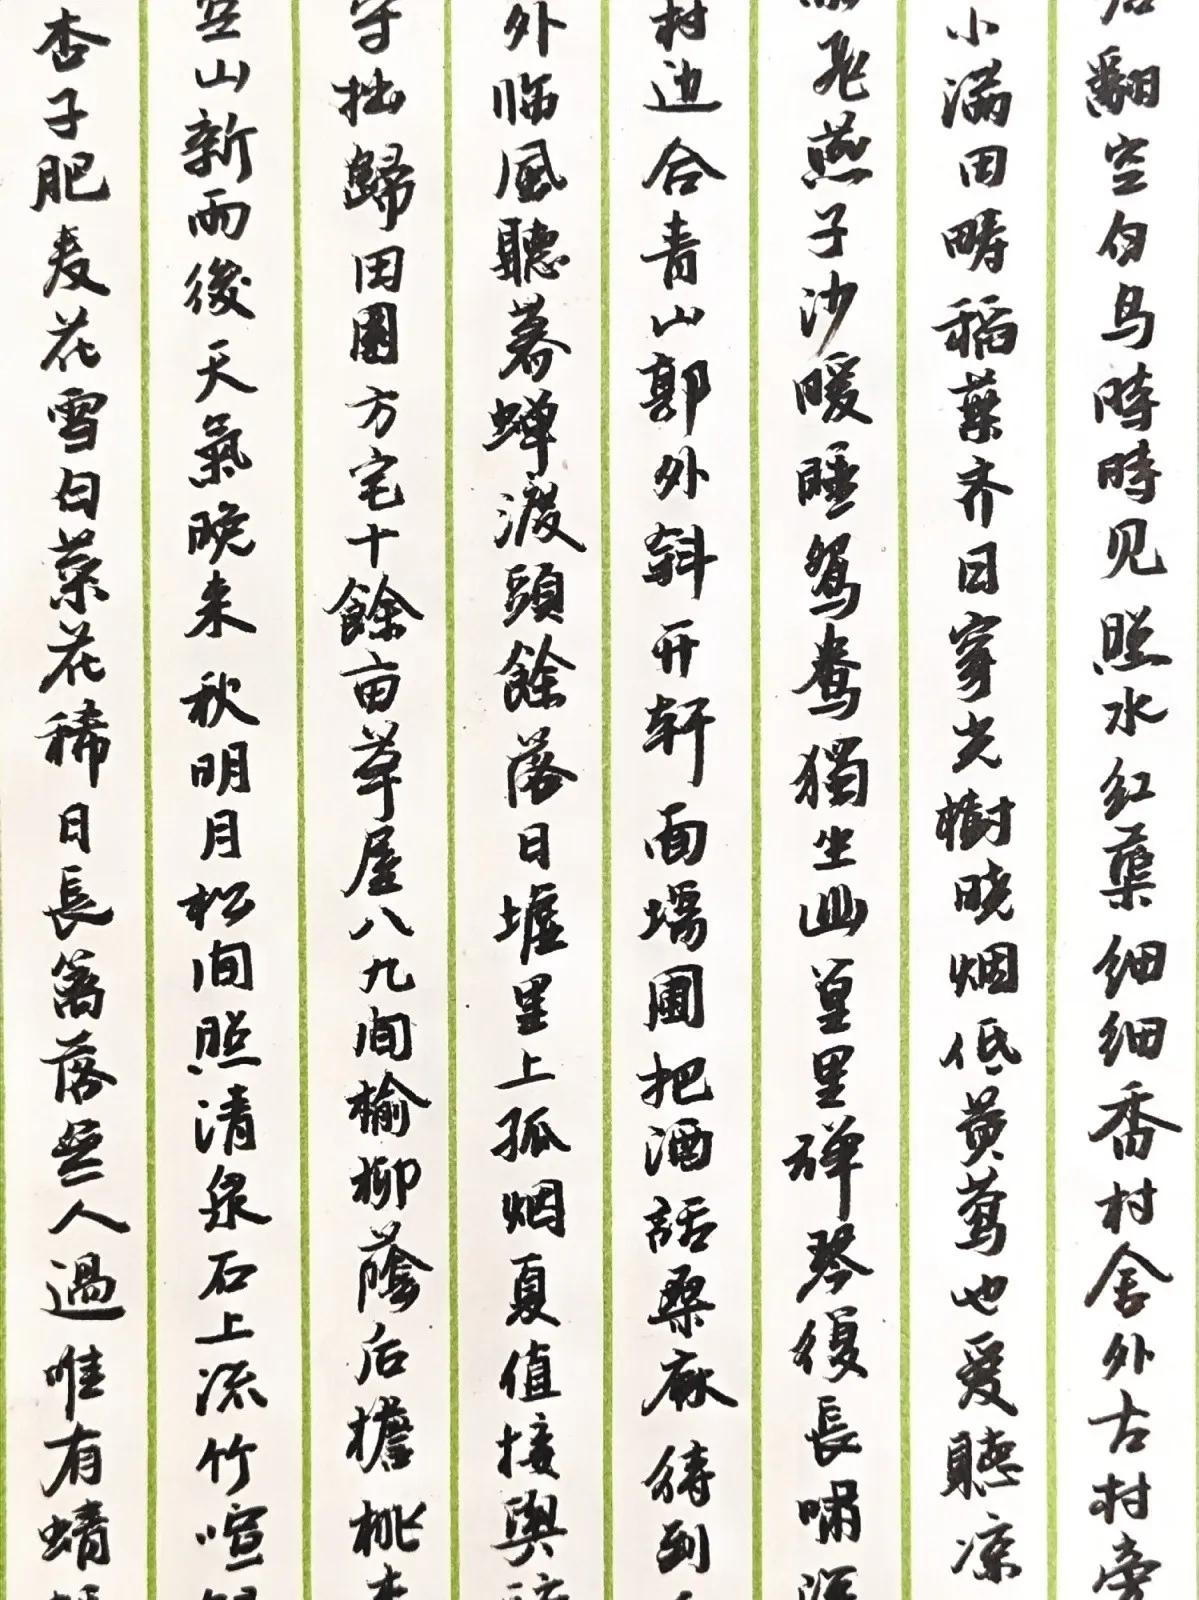 翻空白鸟時時见照水红蕖细细香村舍外古村旁
小满田疇稻葉齐日穿光樹晓烟低黄莺也爱聽凉
飛燕子沙暖睡鸳鸯獨坐幽篁里弹琴復長啸深
村边合青山郭外斜开轩面場圃把酒話桑麻待到
外临風聽暮蝉渡頭餘落日墟里上孤烟夏值接輿
守拙歸田園方宅十餘亩草屋八九间榆柳蔭后檐桃李
空山新雨後天氣晚来秋明月松间照清泉石上流竹喧
杏子肥麦花雪白菜花稀日長篱落無人過唯有蜻